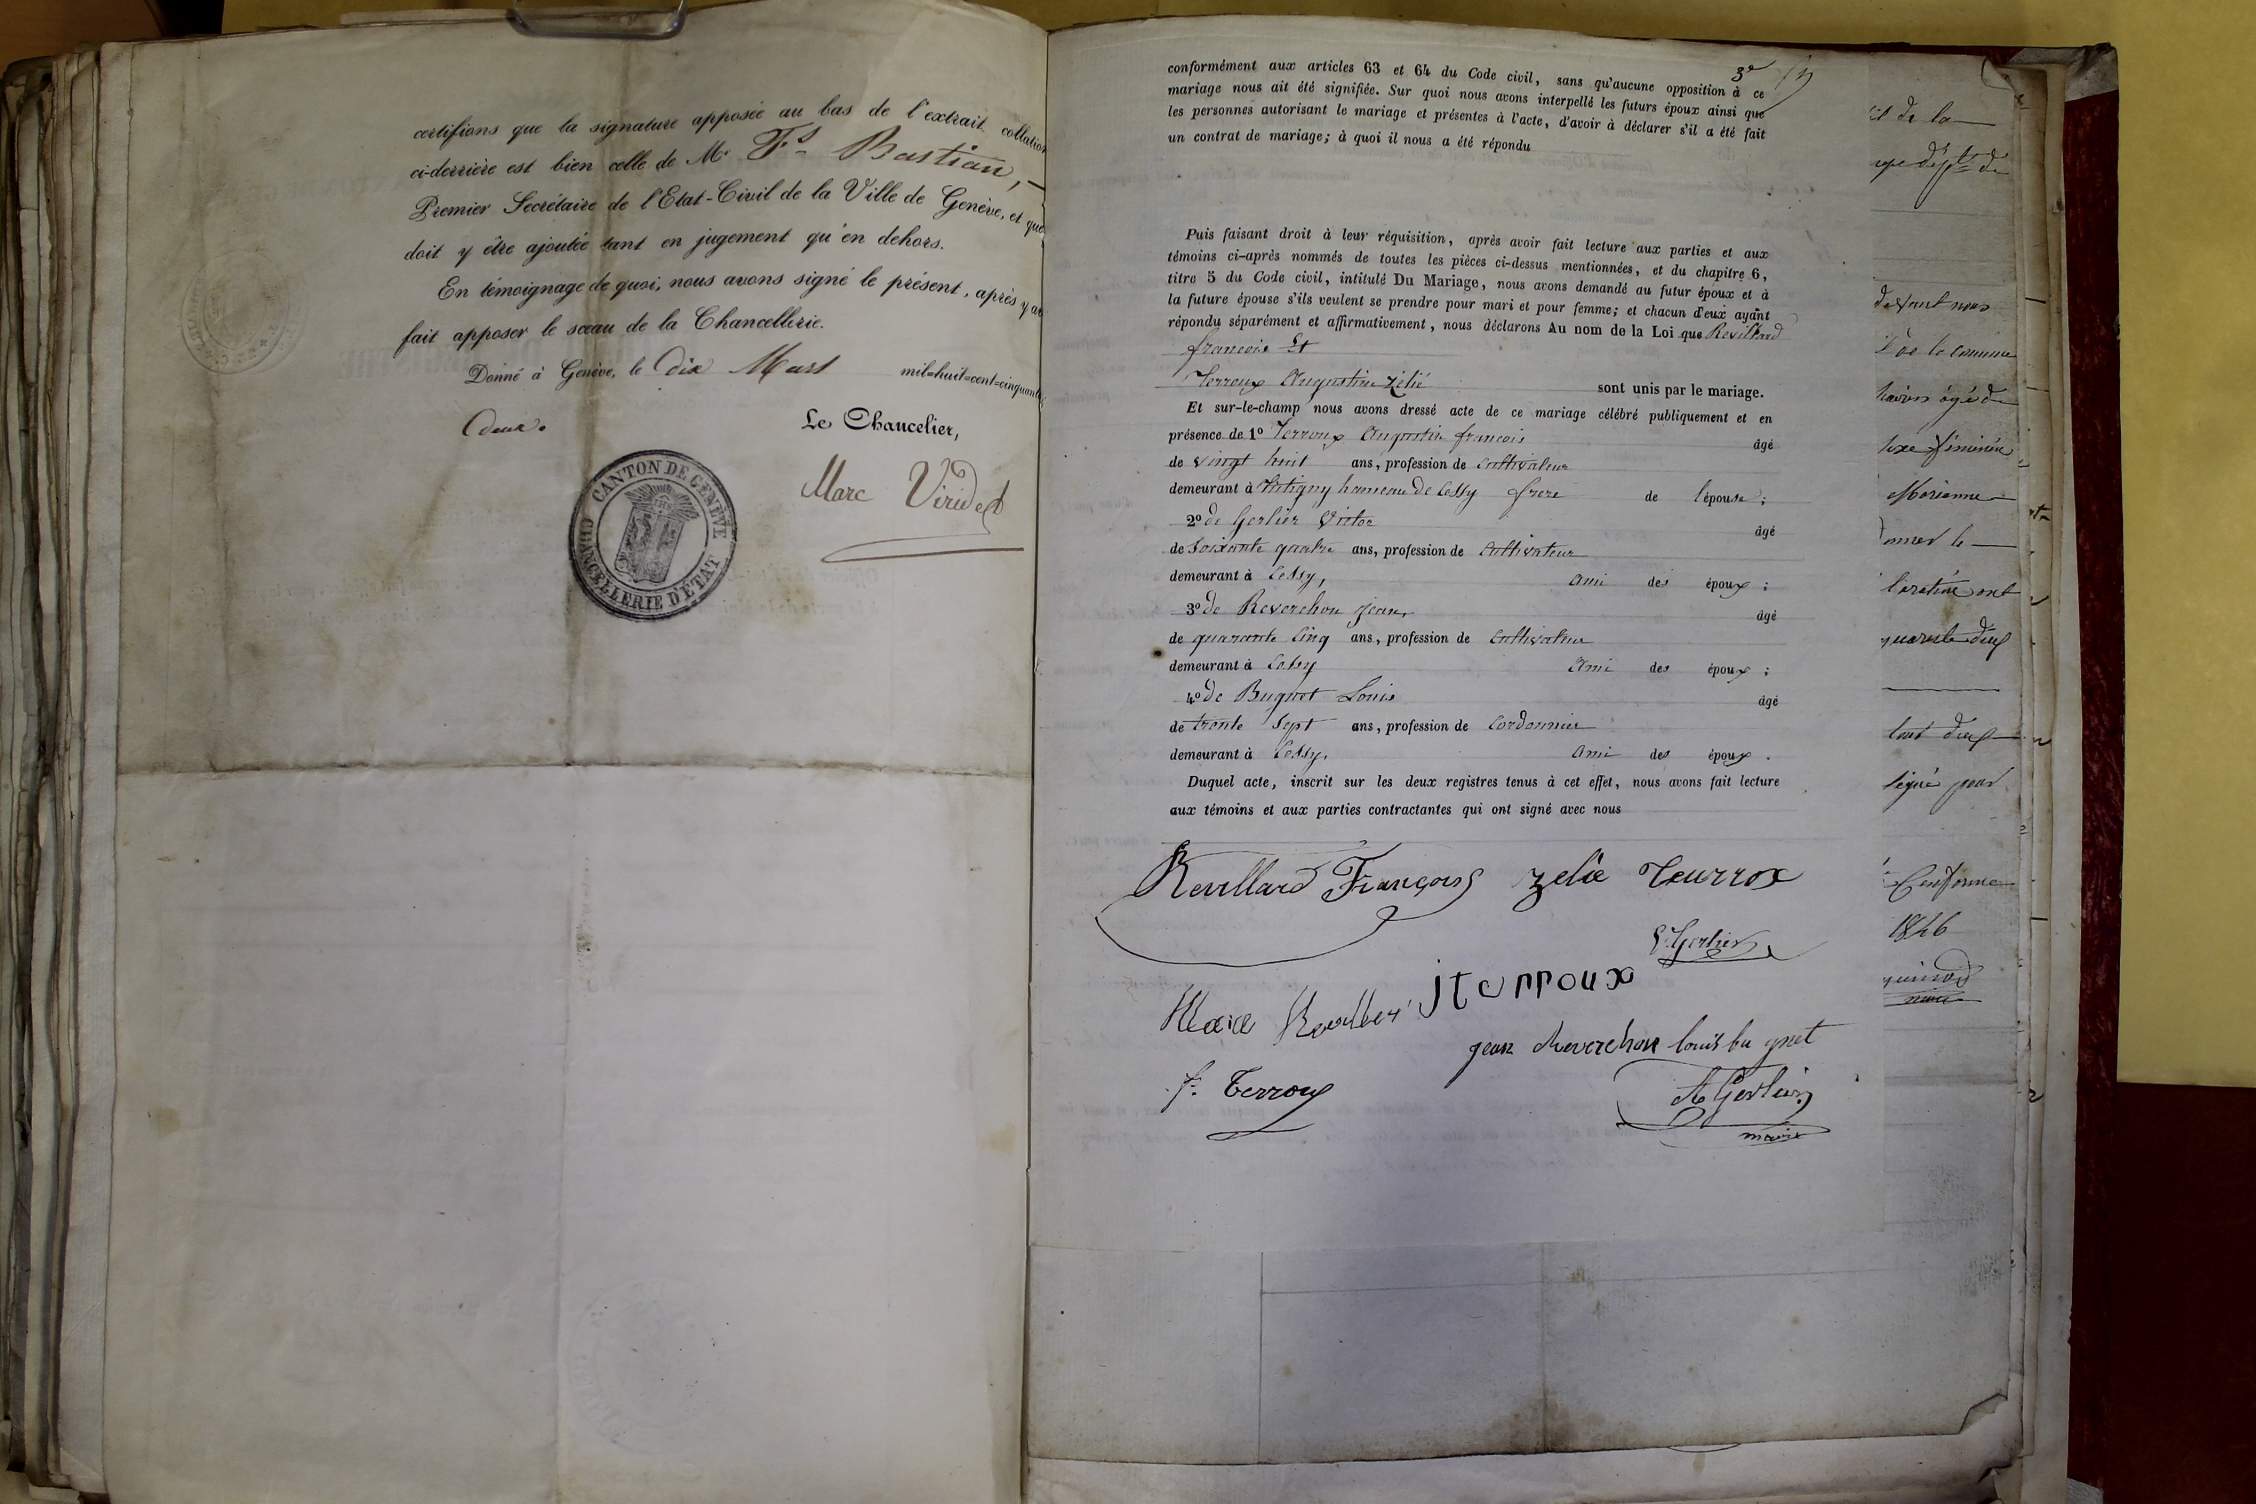 certifions que la signature apposée au bas de l'extrait collation
ci-derrière est bien celle de Mr Fs Bastian,
Premier Secrétaire de l'Etat-Civil de la Ville de Genève, et que
doit y être ajoutée tant en jugement qu'en dehors.
En témoignage de quoi, nous avons signé le présent, après y av
fait apposer le sceau de la Chancellerie.
Donné à Genève, le dix Mars mil-huit-cent-cinquante
deux.
Le Chancelier,
Marc Viridet
CANTON DE GENÈVE
CHANCELLERIE D'ÉTAT
3e
conformément aux articles 63 et 64 du Code civil, sans qu'aucune opposition à ce
mariage nous ait été signifiée. Sur quoi nous avons interpellé les futurs époux ainsi que
les personnes autorisant le mariage et présentes à l'acte, d'avoir à déclarer s'il a été fait
un contrat de mariage; à quoi il nous a été répondu
Puis faisant droit à leur réquisition, après avoir fait lecture aux parties et aux
témoins ci-après nommés de toutes les pièces ci-dessus mentionnées, et du chapitre 6,
titre 5 du Code civil, intitulé Du Mariage, nous avons demandé au futur époux et à
la future épouse s'ils veulent se prendre pour mari et pour femme; et chacun d'eux ayant
répondu séparément et affirmativement, nous déclarons Au nom de la Loi que Revillard
francois Et
Terroux Augustine zélié sont unis par le mariage.
Et sur-le-champ nous avons dressé acte de ce mariage célébré publiquement et en
présence de 1o Terroux Augustin francois âgé
de vingt huit ans, profession de Cultivateur
demeurant à hameau de Cessy frere de l'épouse;
2o de Gerlier Victor âgé
de Soixante quatre ans, profession de Cultivateur
demeurant à Cessy, Ami des époux;
3o de Reverchon jean, âgé
de quarante Cinq ans, profession de Cultivateur
demeurant à Cessy Ami des époux;
4o de Bugnet Louis âgé
de trente Sept ans, profession de Cordonnier
demeurant à Cessy, Ami des époux.
Duquel acte, inscrit sur les deux registres tenus à cet effet, nous avons fait lecture
aux témoins et aux parties contractantes qui ont signé avec nous
Revillard François zelie Teurrox
V. Gerlier
jterroux
jean Reverchon louis bu gnet
fs Terroux
A Gerlier
maire
cil de la
devant nous
de la commune
âgé de
sexe féminin
Marianne
quarante deux
cent deux
signé pour
Conforme
1846
maire